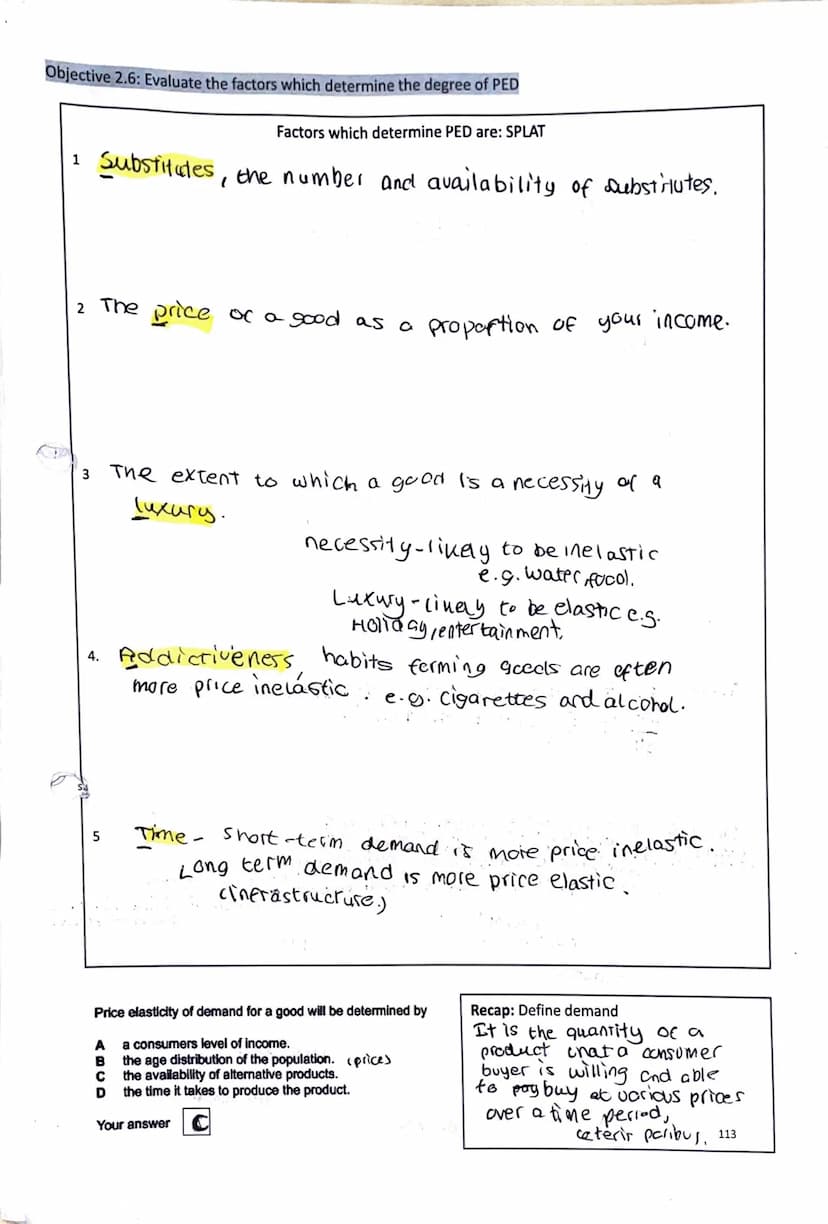 Objective 2.6: Evaluate the factors which determine the degree of PED
Factors which determine PED are: SPLAT
1 Substitutes, the number and availability of substitutes.
2 The price of a good as a proportion of your income.
3 The extent to which a good is a necessity or a
luxury.
necessity-likely to be inelastic
e.g. water, food.
Luxury-likely to be elastic e.g.
Holiday, entertainment,
4. Addictiveness, habits forming goods are often
more price inelastic. e.g. cigarettes and alcohol.
5 Time - short-term demand is more price inelastic.
Long term demand is more price elastic.
(infrastructure)
Price elasticity of demand for a good will be determined by
A a consumers level of income.
B the age distribution of the population. (prices)
C the availability of alternative products.
D the time it takes to produce the product.
Your answer C
Recap: Define demand
It is the quantity of a
product that a consumer
buyer is willing and able
to buy at various prices
over a time period,
ceterir paribus.
113